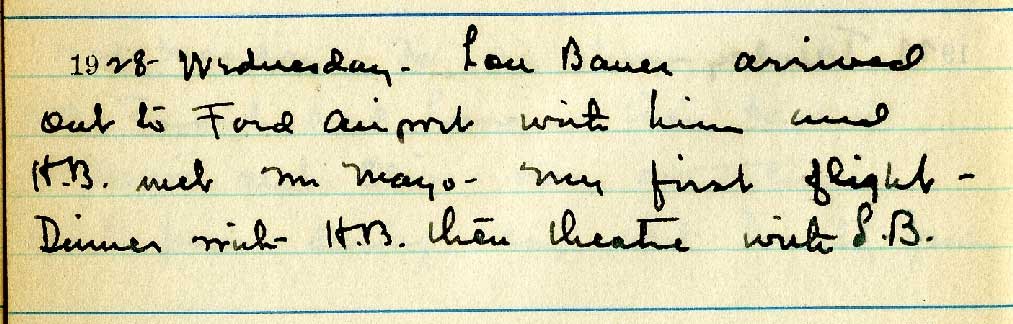 1928 Wednesday - Lou Bauer arrived
out to Ford airport with him and
H.B. met Mr Mayo - my first flight -
Dinner with H.B. then theatre with L.B.